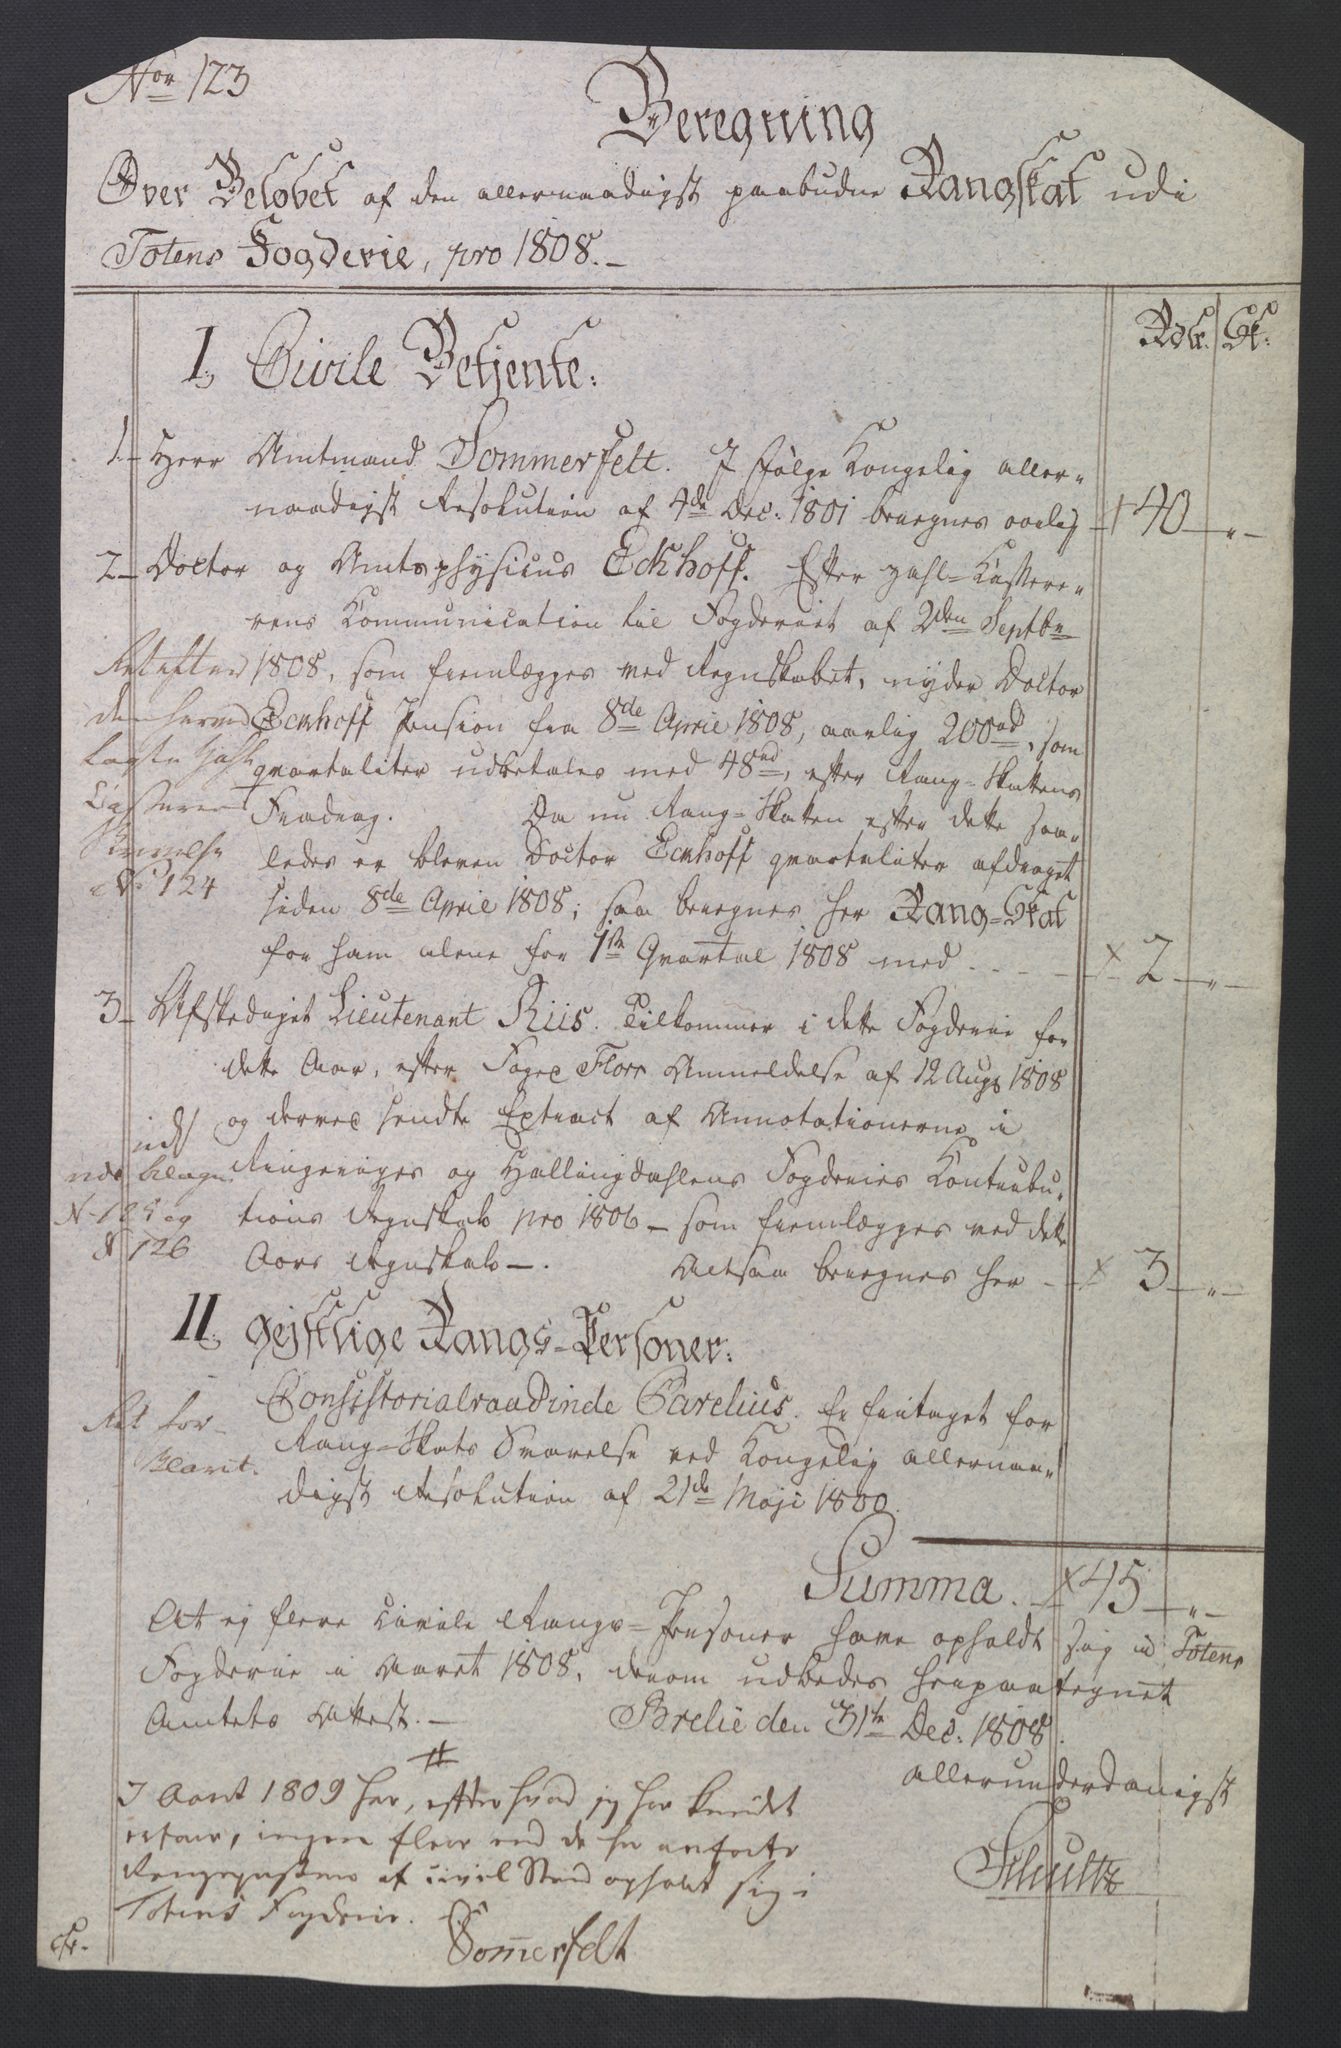 Nor 123
Beregning
Over Beløbet af den allernaadigst paabudne Rangskat udi
Totens Fogderie, pro 1808.
Rdlr. Sk:
I, Civile Betjente:
1. Herr Amtmand Sommerfelt. I følge Kongelig aller-
naadigst Resolution af 4de Dec: 1801 beregnes aarlig 40 „
2 Doctor og Amtsphysicus Eckhoff. Efter Zahl-Kassere-
rens Communication til Fogderiet af 2den Septbr
1808, som fremlægges ved Regnskabet, nyder Doctor
Eckhoff Pension fra 8de April 1808, aarlig 200rd, som
qvartaliter udbetales med 48rd, efter Rang-Skattens
Fradrag. Da nu Rang-Skatten efter dette saa-
ledes er bleven Doctor Eckhoff qvartaliter afdraget
siden 8de April 1808; saa beregnes her Rang-Skat
for ham alene for 1ste Qvartal 1808 med 2 „
Ret efter
den herved
lagte Zahl
Casserer
Skrivelse
No 124
3 Afskediget Lieutenant Riis. Tilkommer i dette Foderie for
dette Aar, efter Foged Florr Anmeldelse af 12 Augs 1808
og derved sendte Extract af Annotationerne i
Ringeriges og Hallingdahlens Fogderies Contribu-
tions Regnskab pro 1806 – som fremlægges ved dette
Aars Regnskab –. Altsaa beregnes her 3 „
bilagene
N. 125 og
N 126
II. geistlige Rangs-Personer:
Consistorialraadinde Carelius. Er fritaget for
Rang-Skats Svarelse ved Kongelig allernaa-
digst Resolution af 21de Maji 1800.
Ret for-
klaret.
Summa. 45 „
At ej flere civile Rangs-Personer have opholdt sig i Totens
Fogderie i Aaret 1808, derom udbedes herpaategnet
Amtets Attest. – Brelie den 31te Dec: 1808.
allerunderdanigst
Schultz
I Aaret 1809 har, efter hvad jeg har kundet
erfare, ingen flere end de her anførte
Rangspersoner af civil Stand opholdt sig i
Totens Fogderie.
Sommerfelt